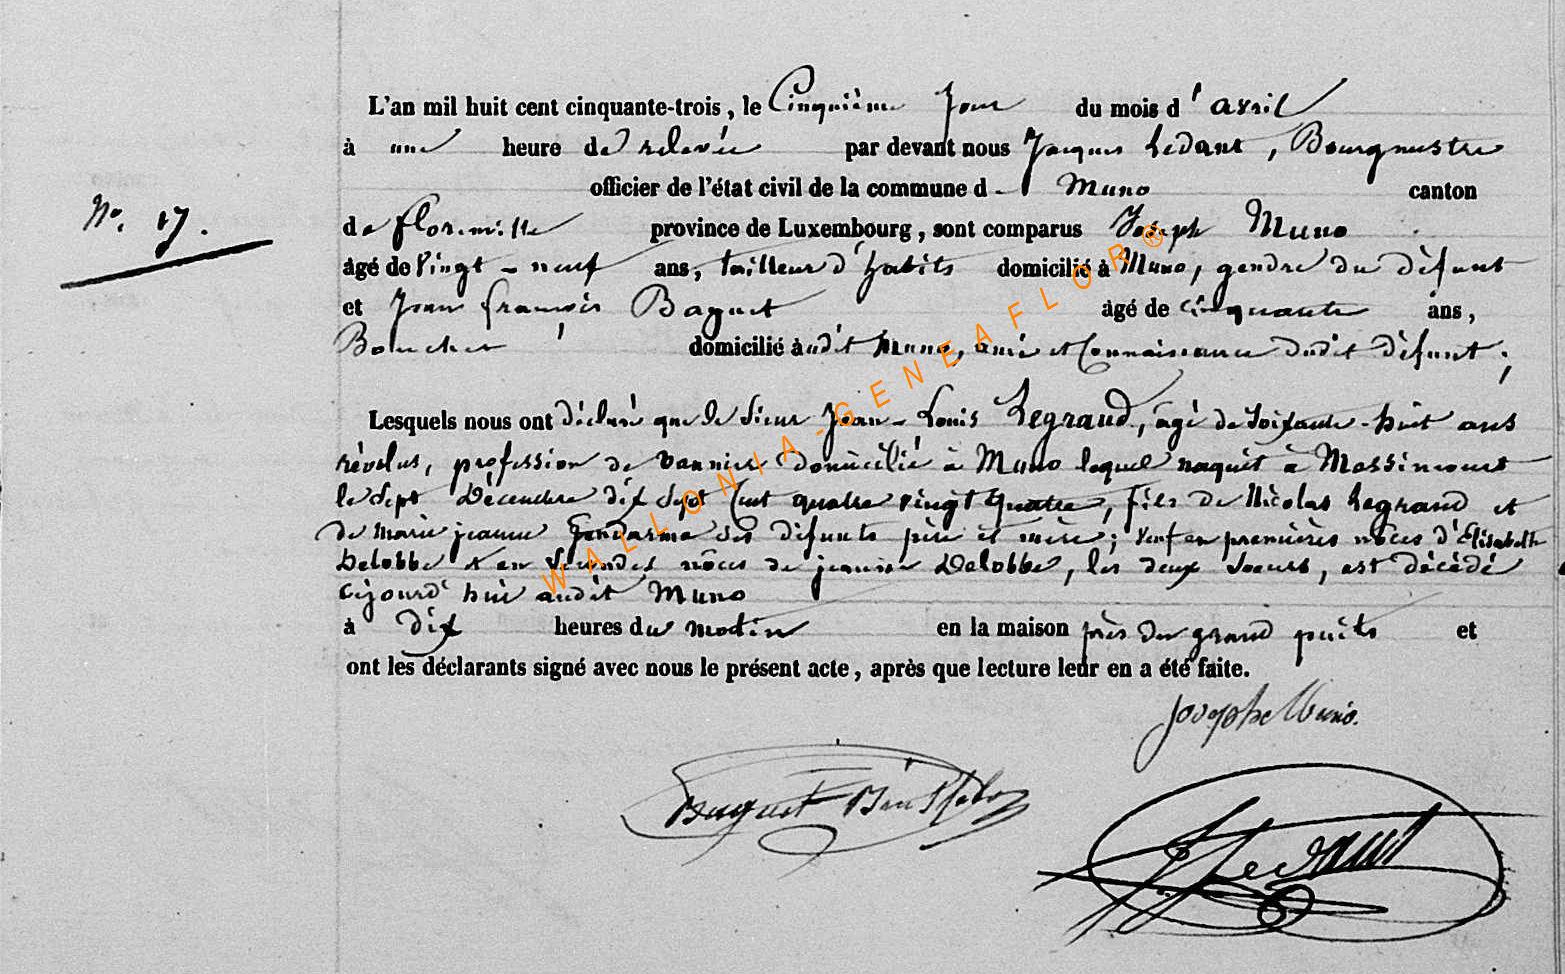 L'an mil huit cent cinquante-trois, le Cinquième Jour du mois d'avril
à une heure de relevée par devant nous Jacques Ledant, Bourgmestre
officier de l'état civil de la commune d- Muno canton
No. 17.
de florenville province de Luxembourg, sont comparus Joseph Muno
âgé de Vingt-neuf ans, tailleur d'habits domicilié à Muno, gendre du défunt
et Jean françois Baguet âgé de cinquante ans,
Boucher domicilié audit Muno, ami et Connaissance dudit défunt;
Lesquels nous ont déclaré que le Sieur Jean-Louis Legrand, âgé de Soixante-huit ans
révolus, profession de vannier domicilié à Muno lequel naquit à Messincourt
le Sept Décembre dix Sept Cent quatre vingt quatre, fils de Nicolas Legrand et
de marie jeanne Gendarme ses défunts père et mère; veuf en premières nôces d'Élisabeth
Delobbe et en Secondes nôces de jeanne Delobbe, les deux Soeurs, est décédé
cejourd'hui audit Muno
à dix heures du matin en la maison près du grand puits et
ont les déclarants signé avec nous le présent acte, après que lecture leur en a été faite.
Josephe Muno.
Baguet
J Ledant
WALLONIA-GENEAFLOR®